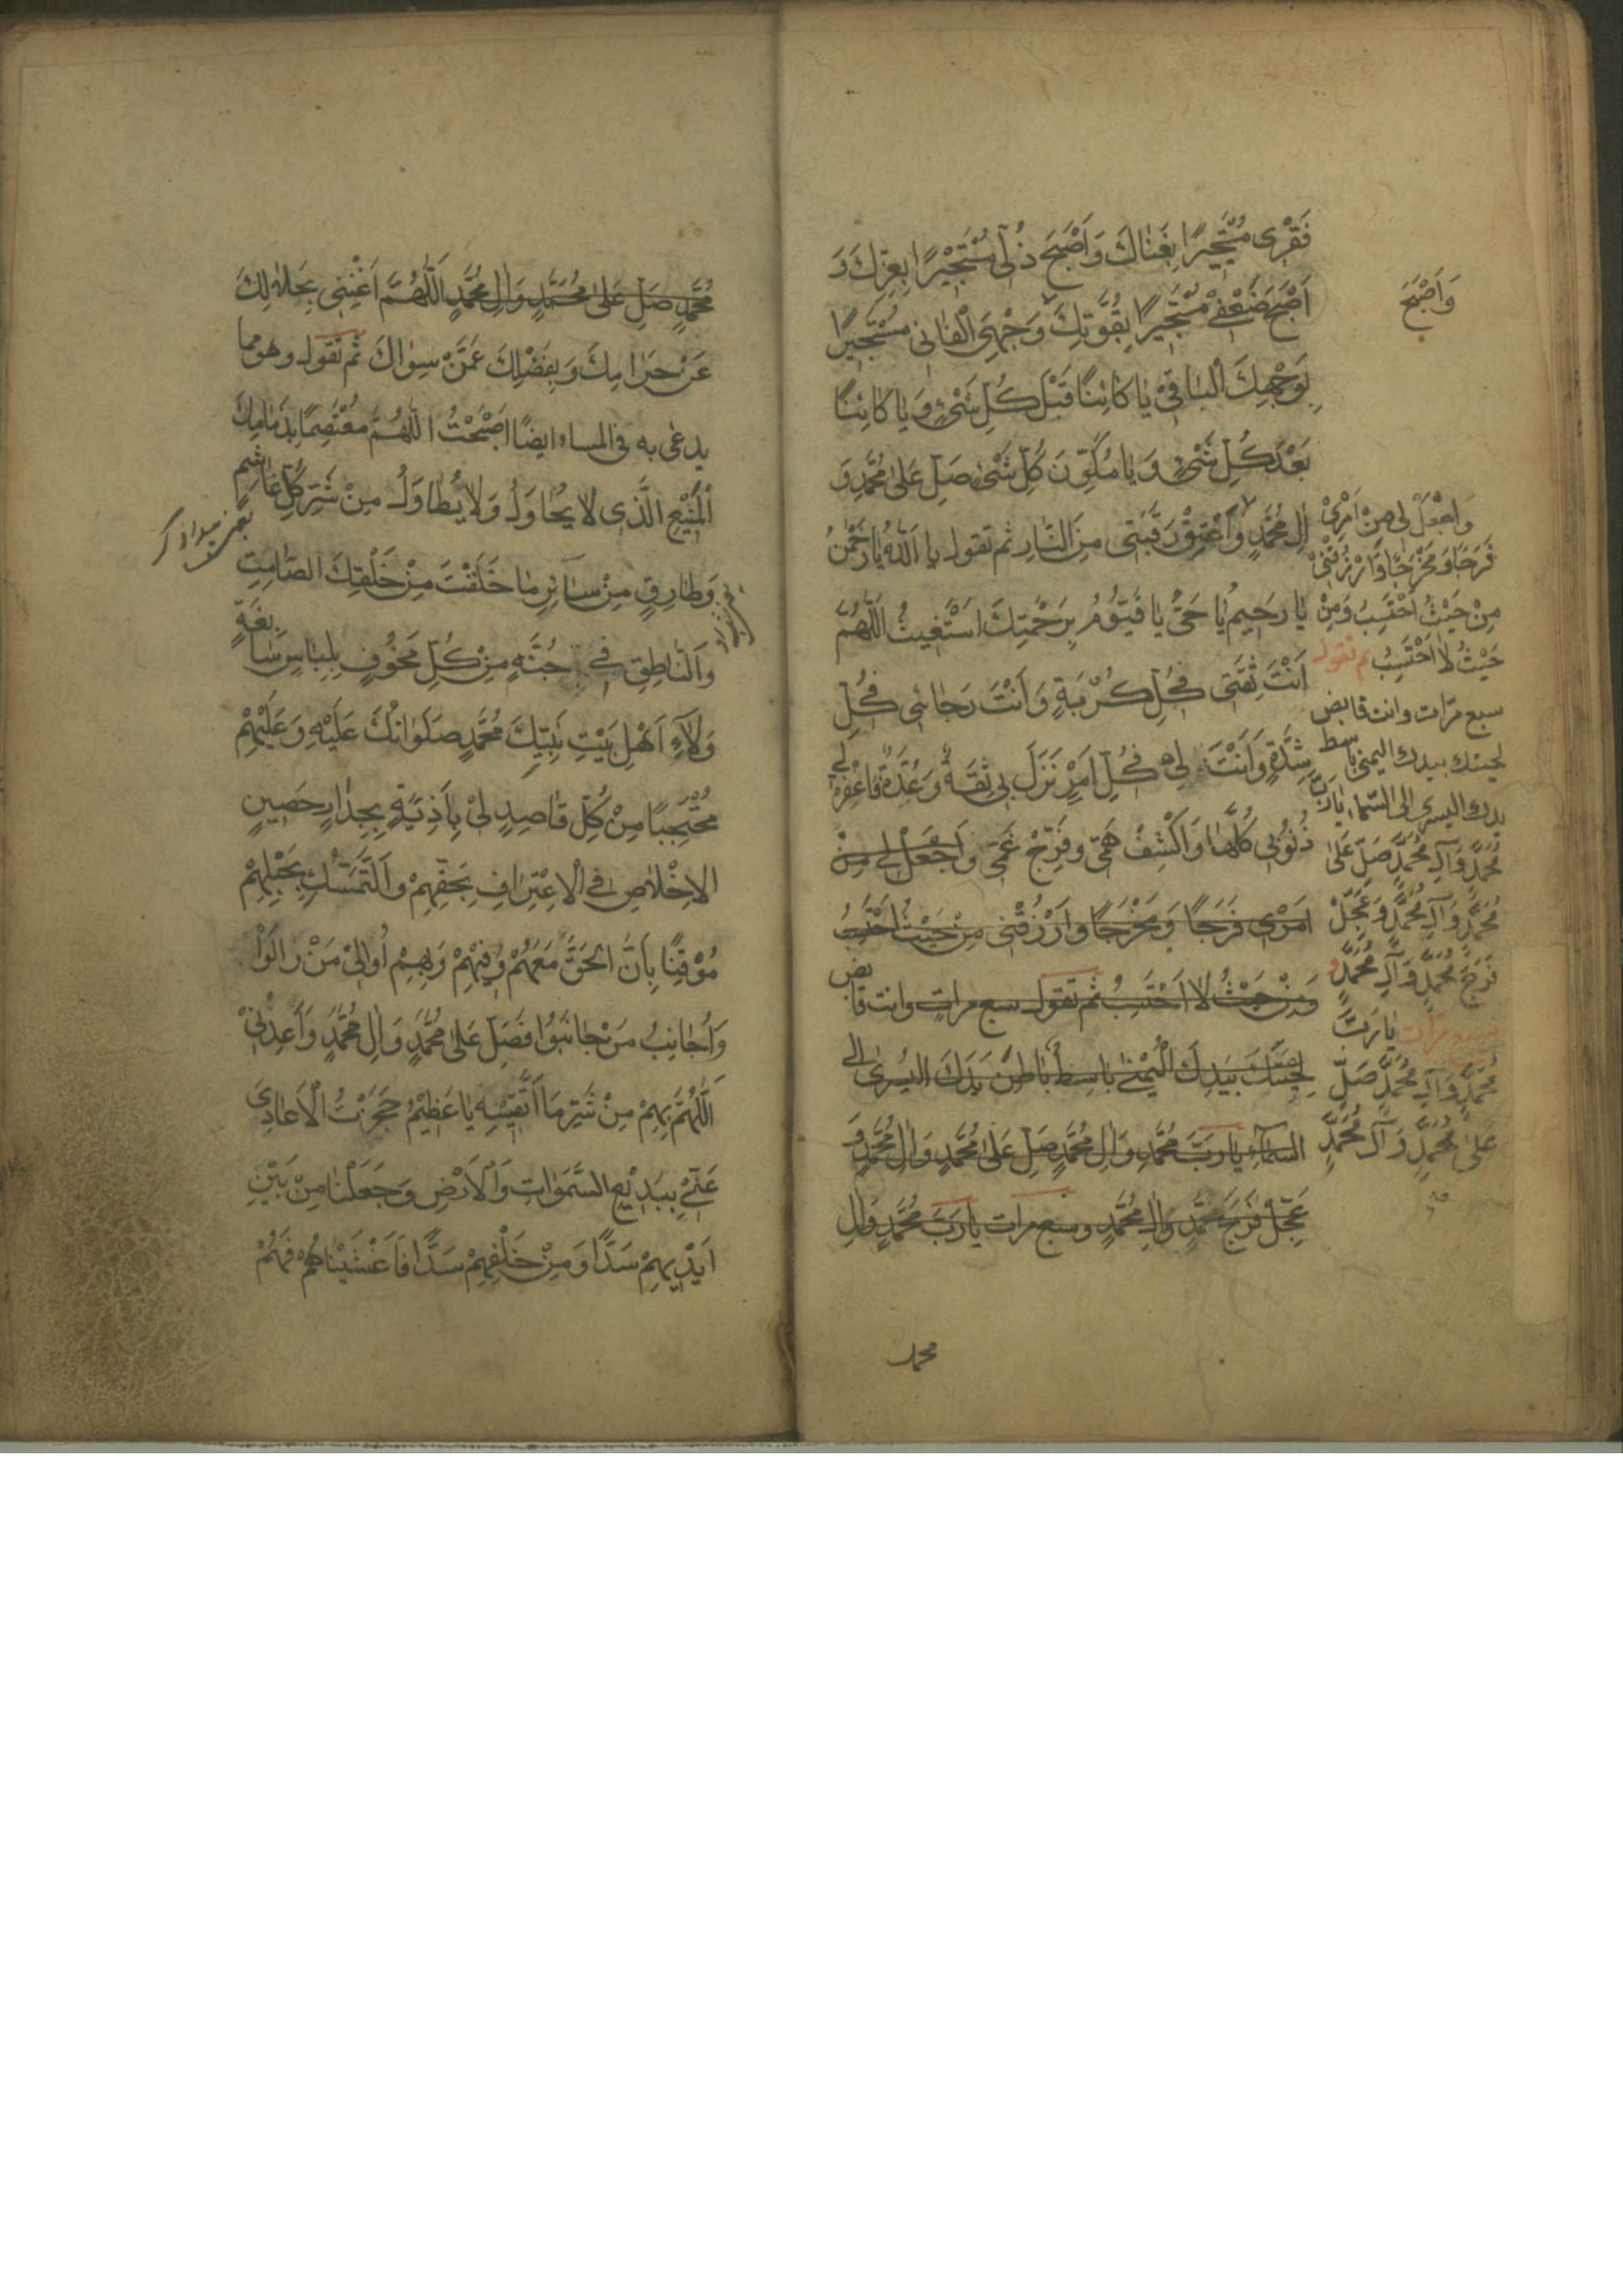 فَقْرِى مُسْتَجِيرًا بِغِنَاكَ وَاَصْبَحَ ذُلِّى مُسْتَجِيْرًا بِعِزِّكَ وَ
اَصْبَحَ ضَعْفِى مُسْتَجِيرًا بِقُوَّتِكَ وَجْهِىَ الْفَانِى مُسْتَجِيرًا
بِوَجْهِكَ الْبَاقِىْ يَا كَائِنًا قَبْلَ كُلِّ شَىْءٍ وَ يَا كَائِنًا
بَعْدَ كُلِّ شَىْءٍ وَ يَا مُكَوِّنَ كُلِّ شَىْءٍ صَلِّ عَلىٰ مُحَمَّدٍ وَ
اٰلِ مُحَمَّدٍ وَ اَعْتِقْ رَقَبَتِى مِنَ النَّارِ ثم تقول يا اَللّٰهُ يَا رَحْمٰنُ
يَا رَحِيمُ يَا حَىُّ يَا قَيُّوْمُ بِرَحْمَتِكَ اَسْتَغِيثُ اَللّٰهُمَّ
اَنْتَ ثِقَتِى فِى كُلِّ كُرْبَةٍ وَ اَنْتَ رَجَائِى فِى كُلِّ
شِدَّةٍ وَ اَنْتَ لِى فِى كُلِّ اَمْرٍ نَزَلَ بِى ثِقَةٌ وَ عُدَّةٌ فَاغْفِرْ لِى
ذُنُوْبِى كُلَّهَا وَ اكْشِفْ هَمِّى وَ فَرِّجْ غَمِّى وَ اجْعَلْ لِى مِنْ
اَمْرِى فَرَجًا وَ مَخْرَجًا وَ ارْزُقْنِى مِنْ حَيْثُ اَحْتَسِبُ
وَ مِنْ حَيْثُ لَا اَحْتَسِبُ ثم تقول سبع مرات وانت قابض
لِحْيَتَكَ بِيَدِكَ الْيُمْنٰى بَاسِطٌ بَاطِنَ يَدِكَ الْيُسْرٰى اِلَى
السَّمَآءِ يَا رَبَّ مُحَمَّدٍ وَ اٰلِ مُحَمَّدٍ صَلِّ عَلىٰ مُحَمَّدٍ وَ اٰلِ مُحَمَّدٍ وَ
عَجِّلْ فَرَجَ مُحَمَّدٍ وَ اٰلِ مُحَمَّدٍ و سبع مرات يَا رَبَّ مُحَمَّدٍ وَ اٰلِ
محمد
وَاَصْبَحَ
وَاجْعَلْ لِى مِنْ اَمْرِىْ
فَرَجًا وَ مَخْرَجًا وَ ارْزُقْنِىْ
مِنْ حَيْثُ اَحْتَسِبُ وَمِنْ
حَيْثُ لَا اَحْتَسِبُ ثم تقول
سبع مرّات وانت قابض
لحيتك بيدك اليمنى باسط
يدك اليسرى الى السّماء يَا رَبَّ
مُحَمَّدٍ وَ آلِ مُحَمَّدٍ صَلِّ عَلىٰ
مُحَمَّدٍ وَ آلِ مُحَمَّدٍ وَ عَجِّلْ
فَرَجَ مُحَمَّدٍ وَ آلِ مُحَمَّدٍ و
سبع مرّات يَا رَبَّ
مُحَمَّدٍ وَ آلِ مُحَمَّدٍ صَلِّ
عَلىٰ مُحَمَّدٍ وَ آلِ مُحَمَّدٍ
مُحَمَّدٍ صَلِّ عَلىٰ مُحَمَّدٍ وَ اٰلِ مُحَمَّدٍ اَللّٰهُمَّ اَغْنِنِى بِحَلَالِكَ
عَنْ حَرَامِكَ وَ بِفَضْلِكَ عَمَّنْ سِوَاكَ ثم تقول وهو مما
يدعى به فى المساء ايضًا اَصْبَحْتُ اللّٰهُمَّ مُعْتَصِمًا بِذِمَامِكَ
الْمَنِيْعِ الَّذِى لَا يُحَاوَلُ وَ لَا يُطَاوَلُ مِنْ شَرِّ كُلِّ غَاشِمٍ
وَ طَارِقٍ مِنْ سَآئِرِ مَا خَلَقْتَ مِنْ خَلْقِكَ الصَّامِتِ
وَ النَّاطِقِ فِى جُنَّةٍ مِنْ كُلِّ مَخُوفٍ بِلِبَاسٍ سَابِغَةٍ
وَلَآءِ اَهْلِ بَيْتِ نَبِيِّكَ مُحَمَّدٍ صَلَوَاتُكَ عَلَيْهِ وَ عَلَيْهِمْ
مُحْتَجِبًا مِنْ كُلِّ قَاصِدٍ لِىْ بِاَذِيَّةٍ بِجِدَارٍ حَصِينٍ
الْاِخْلَاصِ فِى الْاِعْتِرَافِ بِحَقِّهِمْ وَ التَّمَسُّكِ بِحَبْلِهِمْ
مُوْقِنًا بِاَنَّ الْحَقَّ مَعَهُمْ وَ فِيْهِمْ وَ بِهِمْ اُوَالِىْ مَنْ وَالَوْا
وَ اُجَانِبُ مَنْ جَانَبُوا فَصَلِّ عَلىٰ مُحَمَّدٍ وَ اٰلِ مُحَمَّدٍ وَ اَعِذْنِىْ
اَللّٰهُمَّ بِهِمْ مِنْ شَرِّ مَا اَتَّقِيْهِ يَا عَظِيْمُ حَجَزْتُ الْاَعَادِىَ
عَنِّىْ بِبَدِيْعِ السَّمٰوَاتِ وَ الْاَرْضِ وَ جَعَلْنَا مِنْ بَيْنِ
اَيْدِيهِمْ سَدًّا وَ مِنْ خَلْفِهِمْ سَدًّا فَاَغْشَيْنَاهُمْ فَهُمْ